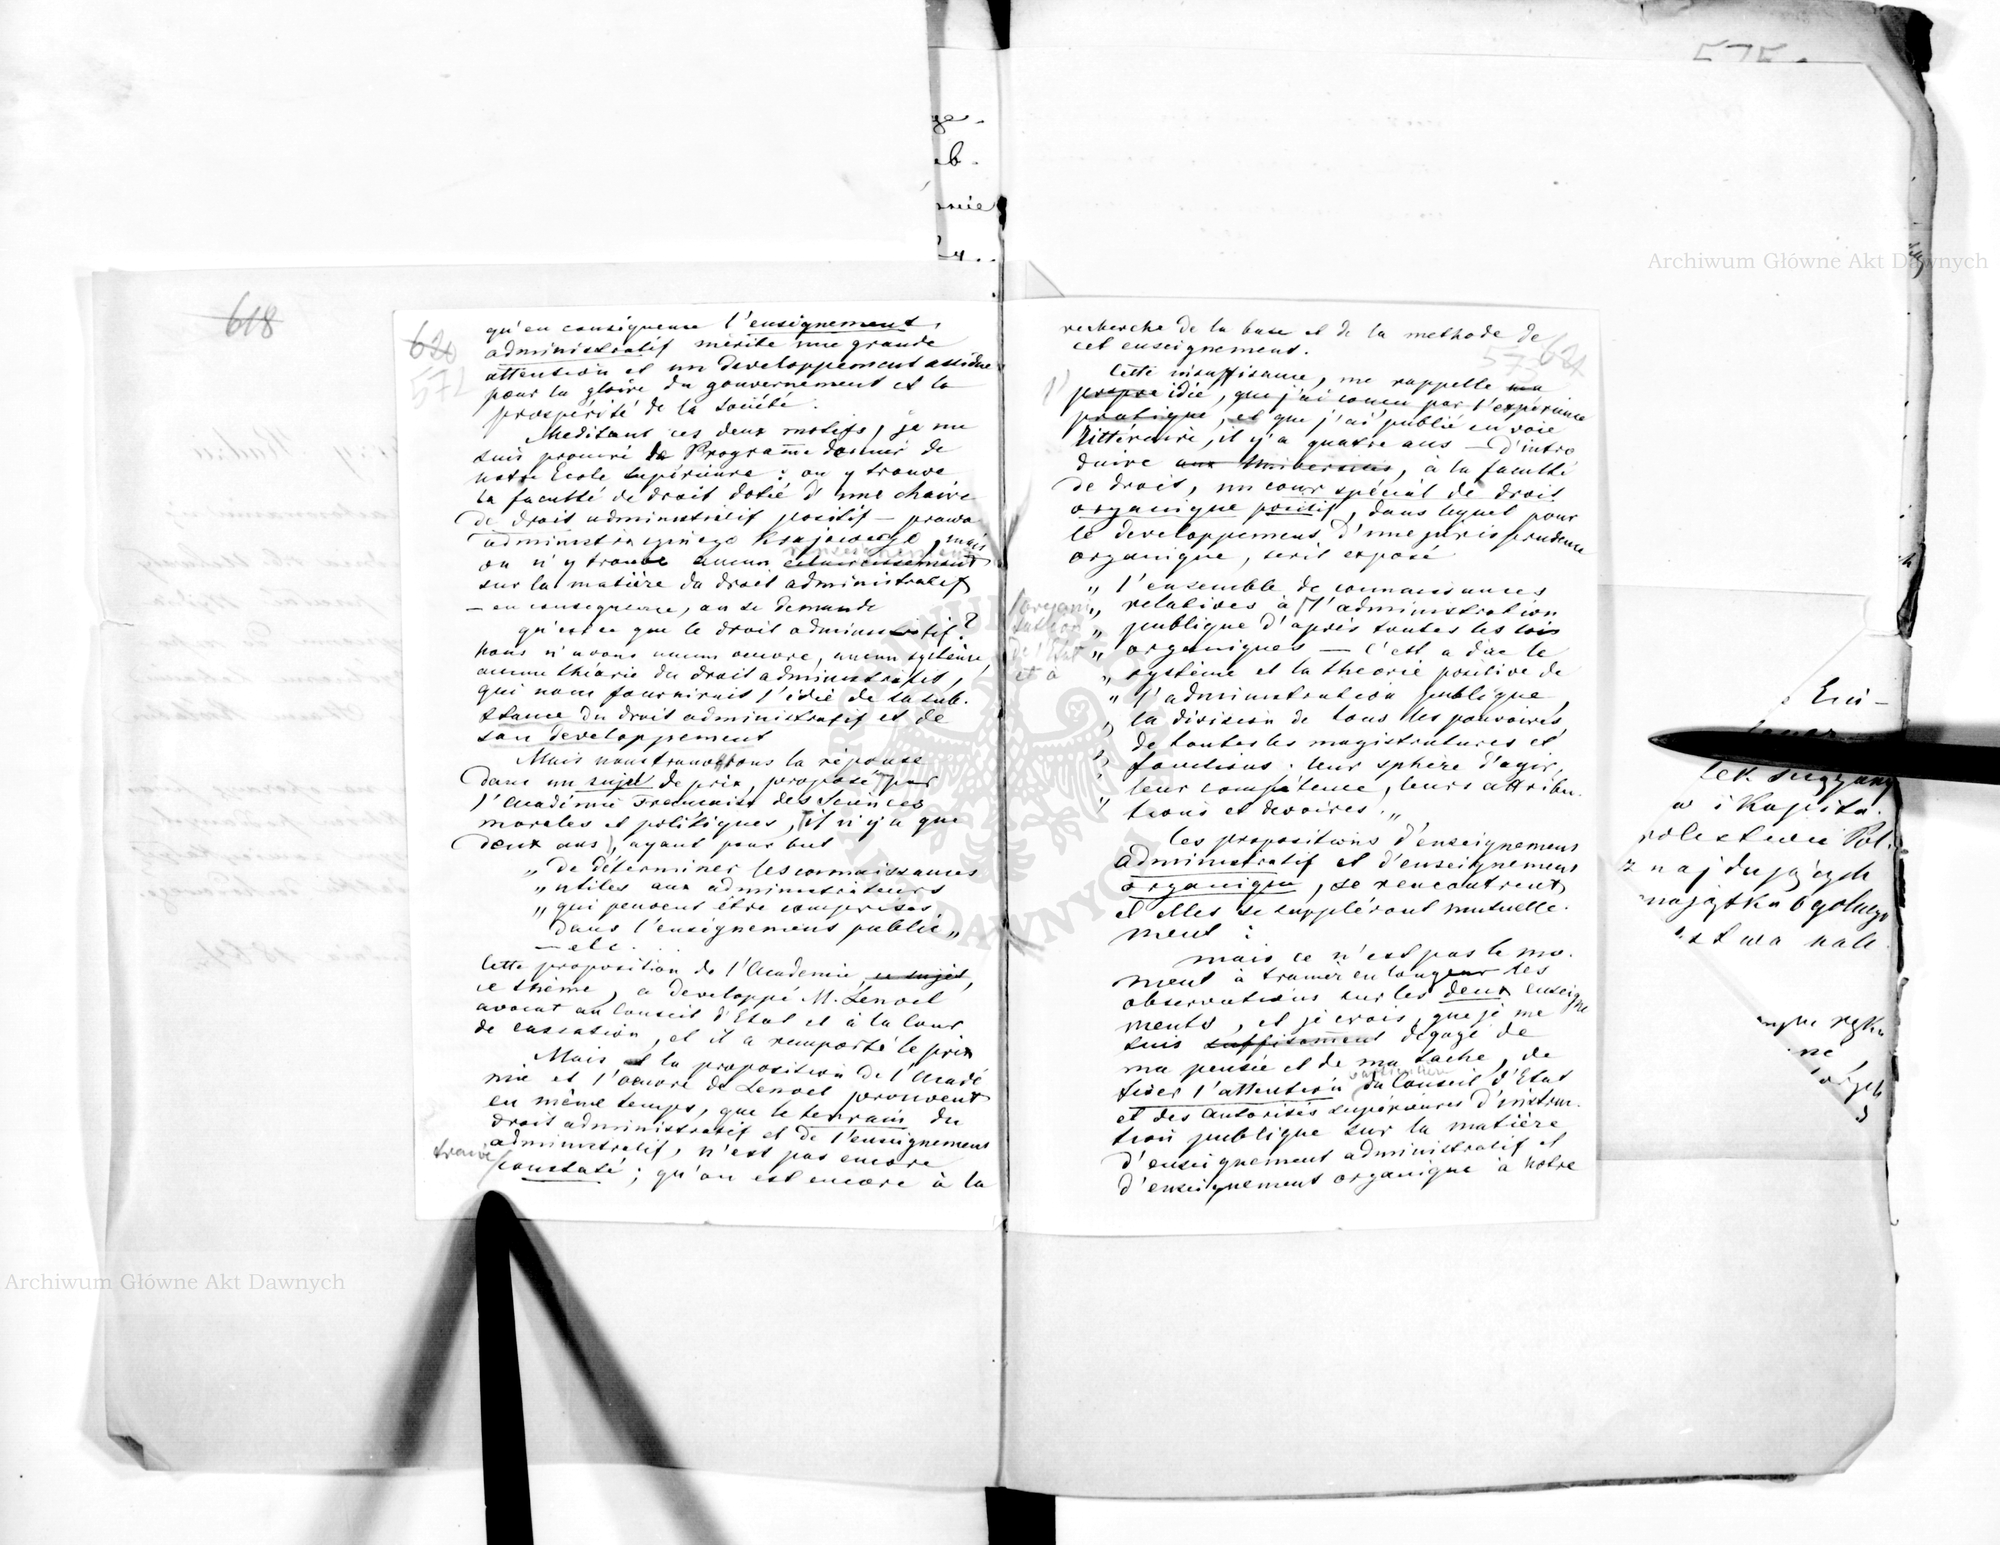 575.
618
620
572
qu'en conséquence l'enseignement
administratif mérite une grande
attention et un developpement assidue
pour la gloire du gouvernement et la
prospérité de la société.
Meditant ces deux motifs, je me
suis procuré le Programme dernier de
notre Ecole supérieure: on y trouve
la faculté de droit dotié d'une chaire
de droit administratif positif — prawa
administracyjnego Krajowego, mais
on n'y trouve aucun éclaircissement
sur la matière du droit administratif
— en consequence, on se demande
qu'est ce que le droit administratif?
Nous n'avons aucun oeuvre, aucun système,
aucune théorie du droit administratif,
qui nous fournirait l'idié de la sub-
stance du droit administratif et de
son developpement
Mais nous trouvons la réponse
dans un sujet de prix, proposé par
l'Académie Française des Sciences
morales et politiques, il n'y a que
deux ans, ayant pour but
„ de déterminer les connaissances
„ utiles aux administrateurs
„ qui peuvent être comprises
dans l'enseignement public „
— etc.
Cette proposition de l'Academie, ce sujet,
ce thème, a developpé M. Lenoel
avocat au Conseil d'Etat et à la Cour
de cassation, et il a remporté le prix
Mais la proposition de l'Acadé
mie et l'oeuvre de Lenoel prouvent
en même temps, que le terrain du
droit administratif et de l'enseignement
administratif, n'est pas encore
constaté; qu'on est encore à la
recherche de la base et de la methode de
cet enseignement.
573
621
Cette insuffisance, me rappelle ma
propre idié, que j'ai concu par l'expérience
pratique, et que j'ai publié en voie
littéraire, il y'a quatre ans — d'intro
duire, à la faculté
de droit, un cour spécial de droit
organique positif, dans lequel pour
le developpement d'une jurisprudence
organique, serit exposé
„ l'ensemble de connaissances
„ relatives à l'administration
l'organi
sation
de l'Etat
et à
„ publique d'après toutes les lois
„ organiques — c'est a dire le
„ système et la theorie positive de
„ l'administration publique,
„ la division de tous les pouvoires,
„ de toutes les magistratures et
„ fonctions: leur sphère d'agir,
„ leur compétence, leurs attribu-
tions et devoires. „
Les propositions d'enseignement
administratif et d'enseignement
organique, se rencontrent
et elles se suppléront mutuelle-
ment:
mais ce n'est pas le mo-
ment à trainer en longeur les
observations sur les deux enseigne
ments, et je crois, que je me
suis suffisament dégagé de
ma pensée et de ma tache, de
fixer l'attention du Conseil d'Etat
et des autorités supérieures d'instruc-
tion publique sur la matière
d'enseignement administratif et
d'enseignement organique à notre
w i Kapita.
znajdujących
Archiwum Główne Akt Dawnych
Archiwum Główne Akt Dawnych